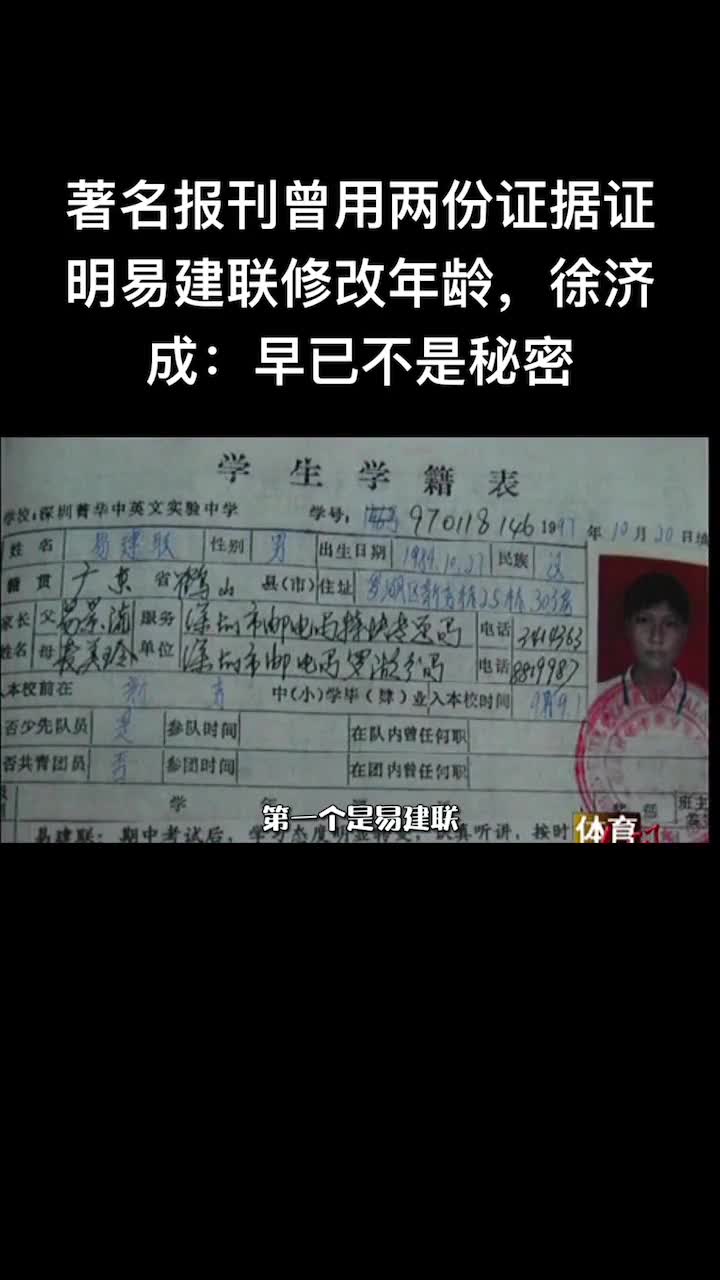 著名报刊曾用两份证据证
明易建联修改年龄，徐济
成：早已不是秘密
学生学籍表
学校：深圳菁华中英文实验中学 学号： 970118146 1997年10月20日填
姓名 易建联 性别 男 出生日期 1984.10.27 民族 汉
籍贯 广东省鹤山县(市) 住址
家长 父 服务 深圳市邮电局 电话 3414363
姓名 母 单位 深圳市邮电局罗湖分局 电话 8819987
入本校前在 新 中(小)学毕(肄)业入本校时间
否少先队员 是 参队时间 在队内曾任何职
否共青团员 否 参团时间 在团内曾任何职
学
班主
第一个是易建联
体育
易建联：期中考试后，学习态度明显转变，认真听讲，按时